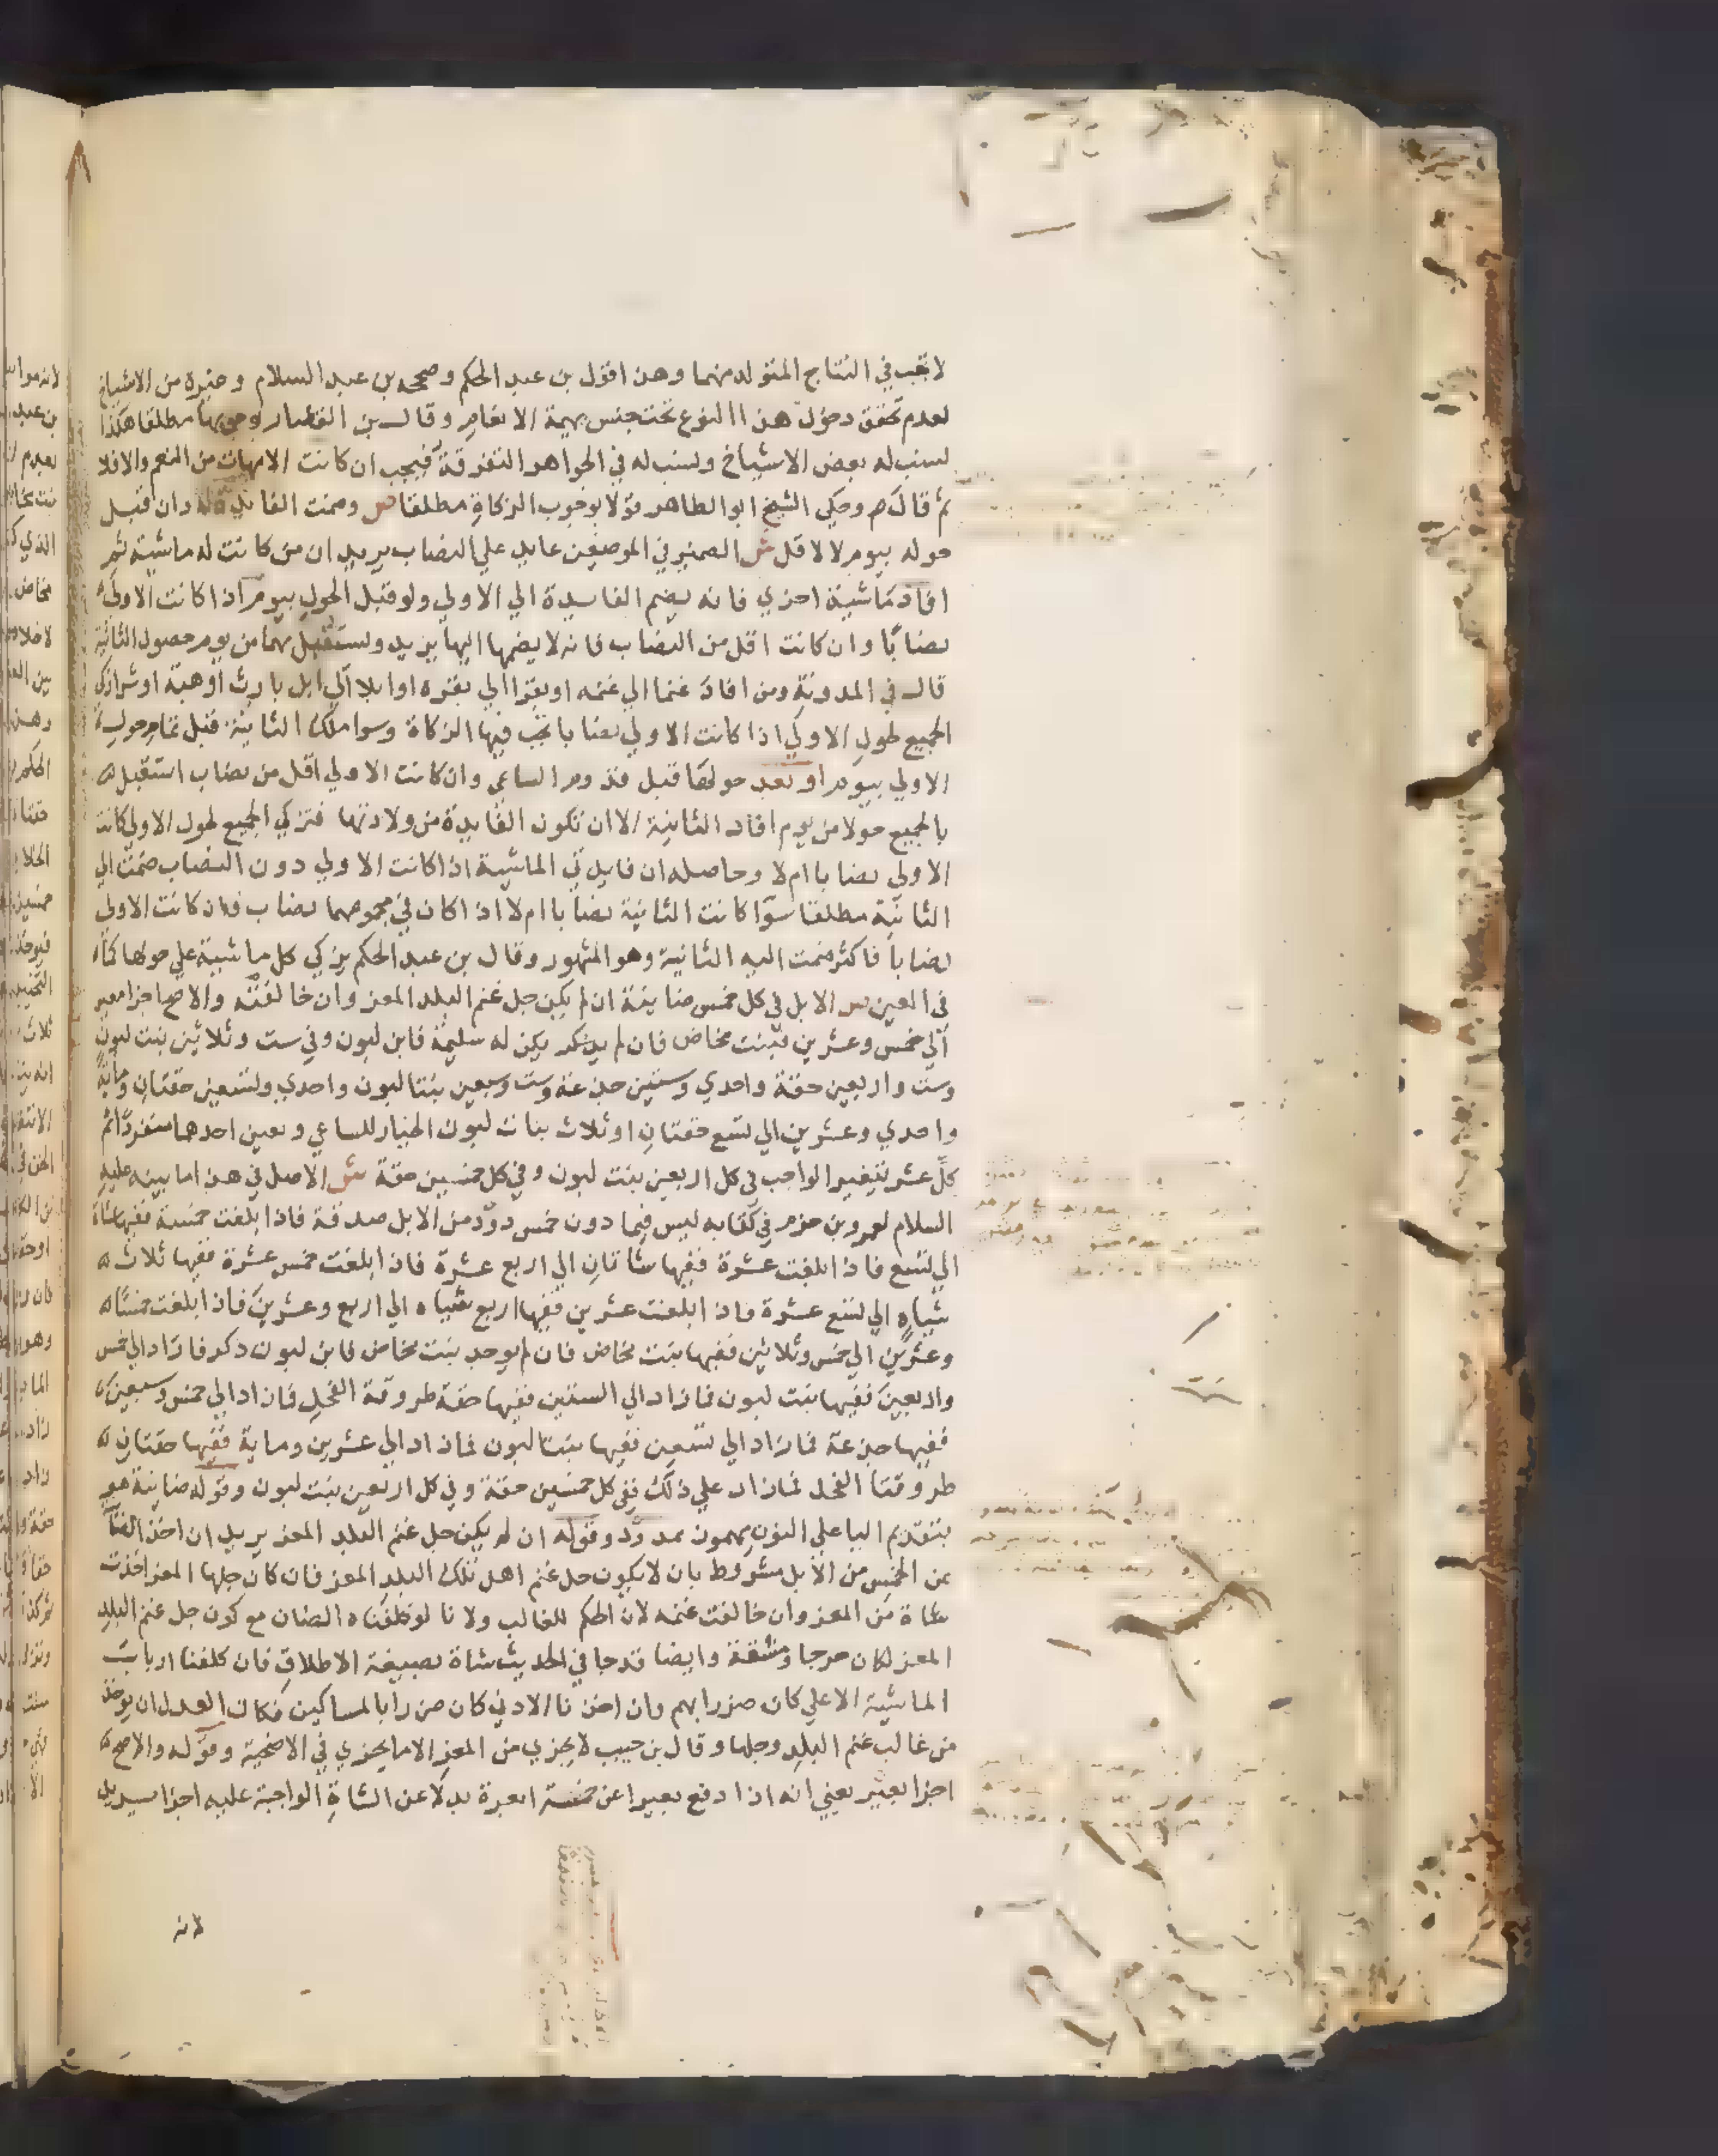 لا تجب في النتاج المتولد منهما وهذا قول بن عبد الحكم وصححه بن عبد السلام وغيره من الاشياخ
لعدم تحقق دخول هذا النوع تحت جنس بهيمة الانعام وقال بن القصار بوجوبها مطلقا هكذا
نسب له بعض الاشياخ ونسب له في الجواهر التفرقة فيجب ان كانت الامهات من النعم والا فلا
ثم قال م وحكي الشيخ ابو الطاهر قولا بوجوب الزكاة مطلقا ص وضمت الفايدة له وان قبل
حوله بيوم لا لاقل ش الضمير في الموضعين عايد علي النصاب يريد ان من كانت له ماشية ثم
افاد ماشية اخري فانه يضم الفايدة الي الاولي ولو قبل الحول بيوم اذا كانت الاولي
نصابا وان كانت اقل من النصاب فانه لا يضمها اليها يريد ويستقبل بهما من يوم حصول الثانية
قال في المدونة ومن افاد غنما الي غنمه او بقرا الي بقره او ابلا الي ابل بارث او هبة او شرا زكي
الجميع لحول الاولي اذا كانت الاولي نصابا تجب فيها الزكاة وسوا ملك الثانية قبل تمام حول
الاولي بيوم او بعد حولها قبل قدوم الساعي وان كانت الاولي اقل من نصاب استقبل
بالجميع حولا من يوم افاد الثانية الا ان تكون الفايدة من ولادتها فتزكي الجميع لحول الاولي كانت
الاولي نصابا ام لا وحاصله ان فايدتي الماشية اذا كانت الاولي دون النصاب ضمت الي
الثانية مطلقا سوا كانت الثانية نصابا ام لا اذا كان في مجموعهما نصاب وان كانت الاولي
نصابا فاكثر ضمت اليه الثانية وهو المشهور وقال بن عبد الحكم يزكي كل ماشية علي حولها كما
في العين ص الابل في كل خمس ضاينة ان لم يكن جل غنم البلد المعز وان خالفته والاصح اجزا بعير
الي خمس وعشرين فبنت مخاض فان لم يكن له سليمة فابن لبون وفي ست وثلاثين بنت لبون
وست واربعين حقة واحدي وستين جذعة وست وسبعين بنتا لبون واحدي وتسعين حقتان وماية
واحدي وعشرين الي تسع حقتان او ثلاث بنات لبون الخيار للساعي وتعين احدهما منفردا ثم
كل عشر يتغير الواجب في كل اربعين بنت لبون وفي كل خمسين حقة ش الاصل في هذا ما بينه عليه
السلام لعمرو بن حزم في كتابه ليس فيما دون خمس ذود من الابل صدقة فاذا بلغت خمسة ففيها شاة
الي تسع فاذا بلغت عشرة ففيها شاتان الي اربع عشرة فاذا بلغت خمس عشرة ففيها ثلاث
شياه الي تسع عشرة فاذا بلغت عشرين ففيها اربع شياه الي اربع وعشرين فاذا بلغت خمسا
وعشرين الي خمس وثلاثين ففيها بنت مخاض فان لم يوجد بنت مخاض فابن لبون ذكر فما زاد الي خمس
واربعين ففيها بنت لبون فما زاد الي الستين ففيها حقة طروقة الفحل فما زاد الي خمس وسبعين
ففيها جذعة فما زاد الي تسعين ففيها بنتا لبون فما زاد الي عشرين وماية ففيها حقتان
طروقتا الفحل فما زاد علي ذلك ففي كل خمسين حقة وفي كل اربعين بنت لبون وقوله ضاينة هو
بتقديم اليا علي النون مهموز ممدود وقوله ان لم يكن جل غنم البلد المعز يريد ان اخذ الضان
عن الخمس من الابل مشروط بان لا يكون جل غنم اهل تلك البلد المعز فان كان جلها المعز اخذت
شاة من المعز وان خالفت غنمه لان الحكم للغالب ولانا لو كلفناه الضان مع كون جل غنم البلد
المعز لكان حرجا ومشقة وايضا قد جا في الحديث شاة بصيغة الاطلاق فان كلفنا ارباب
الماشية الاعلي كان ضررا بهم وان اخذنا الادني كان ضررا بالمساكين فكان العدل ان يوخذ
من غالب غنم البلد وجلها وقال بن حبيب لا يجزي من المعز الا ما يجزي في الاضحية وقوله والاصح
اجزا بعير يعني انه اذا دفع بعيرا عن خمسة ابعرة بدلا عن الشاة الواجبة عليه اجزا يريد
لانه